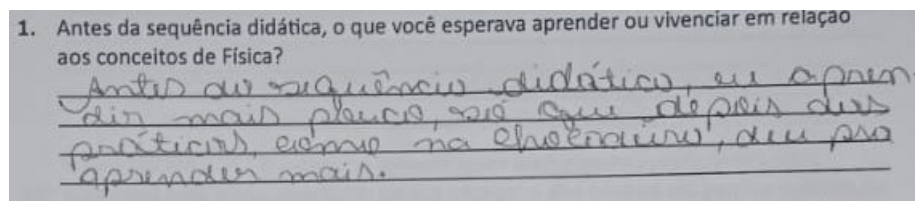 1. Antes da sequência didática, o que você esperava aprender ou vivenciar em relação
aos conceitos de Física?
Antes da sequência didática, eu apren
dia mais pouco, só que depois das
práticas, como na , deu pra
aprender mais.